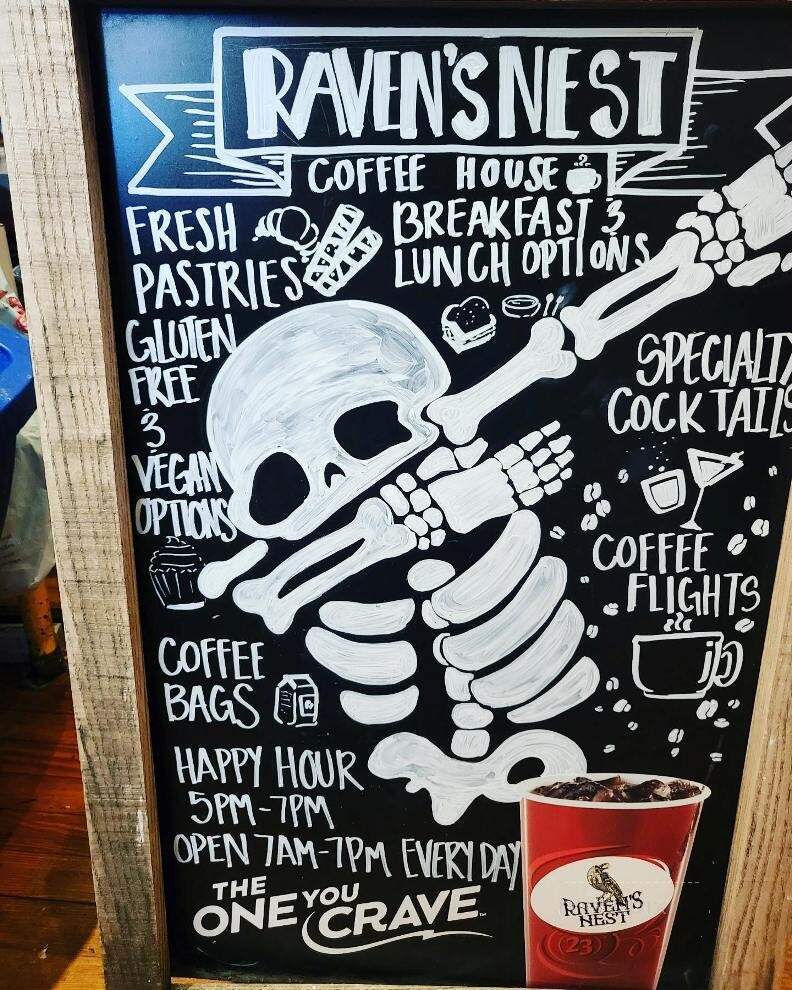 RAVEN'S NEST
COFFEE HOUSE
FRESH
PASTRIES
BREAKFAST &
LUNCH OPTIONS
GLUTEN
FREE
&
VEGAN
OPTIONS
SPECIALTY
COCKTAILS
COFFEE
FLIGHTS
COFFEE
BAGS
HAPPY HOUR
5PM-7PM
OPEN 7AM-7PM EVERY DAY
THE
ONE YOU
CRAVE™
RAVEN'S
NEST
23